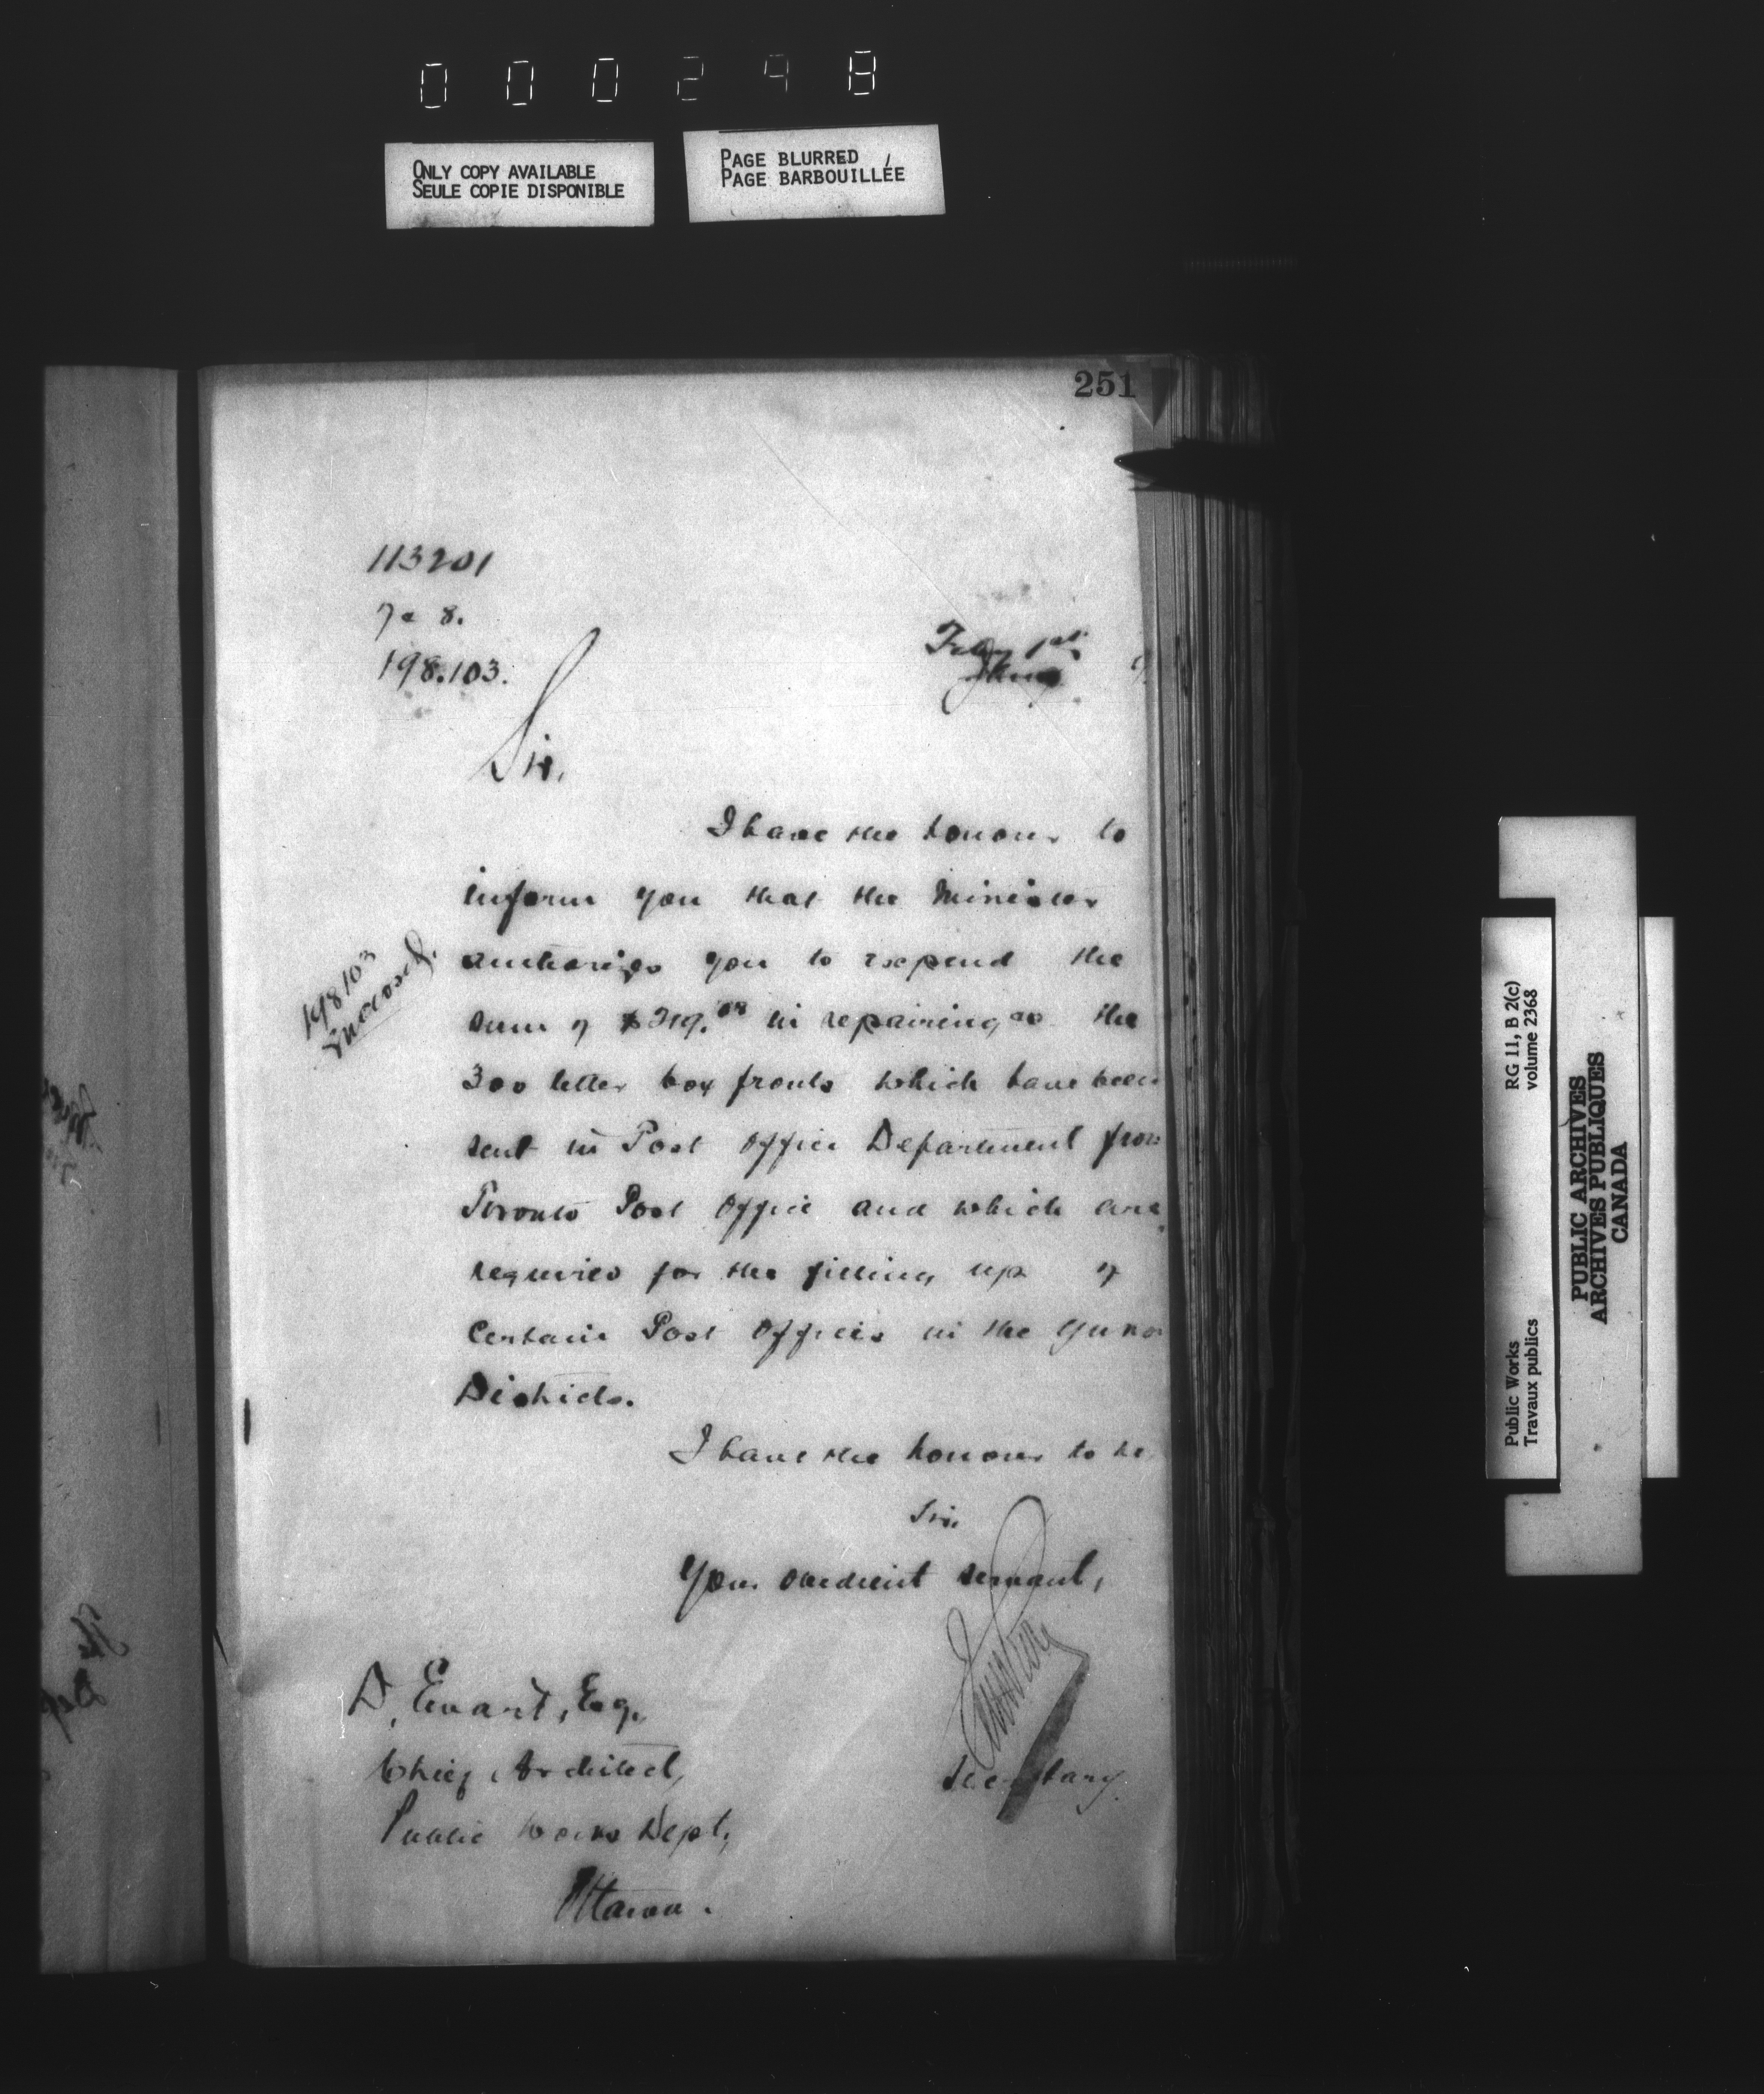 000248
ONLY COPY AVAILABLE
SEULE COPIE DISPONIBLE
PAGE BLURRED
PAGE BARBOUILLÉE
251
113201
7 a 8.
198.103.
Feby 1st
Sir,
I have the honour to
inform you that the Minister
authorizes you to expend the
198103
Enclosd.
sum of $ in repairing the
300 letter box fronts which have been
sent in Post Office Department from
Toronto Post Office and which are
required for the fitting up of
Certain Post Offices in the Yukon
Districts.
I have the honour to be,
Sir,
Your obedient servant,
D. Ewart, Esq.,
Chief Architect,
Secretary.
Public Works Dept.,
Ottawa.
Public Works
Travaux publics
RG 11, B 2(c)
volume 2368
PUBLIC ARCHIVES
ARCHIVES PUBLIQUES
CANADA